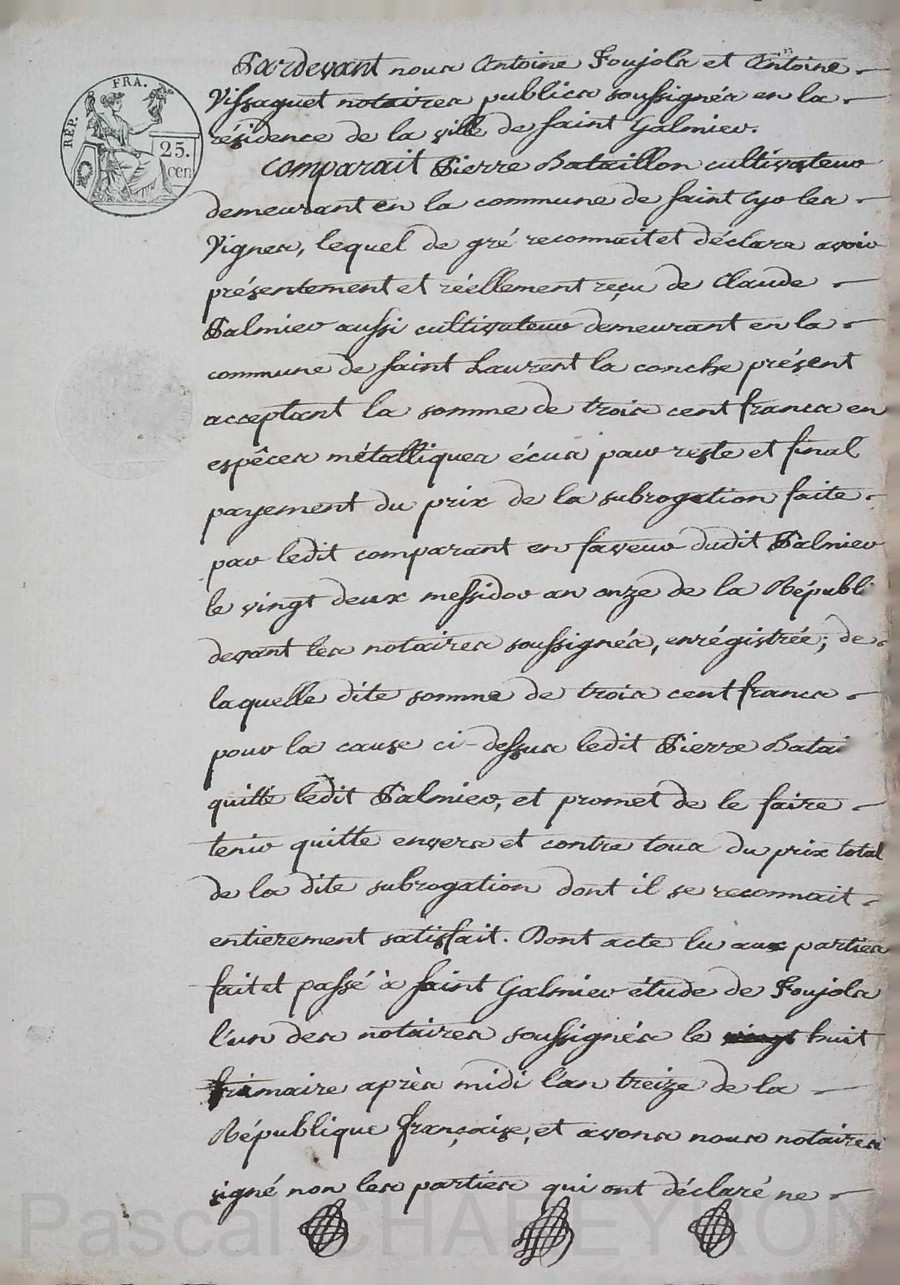 Pardevant nous Antoine Poujols et Antoine
Vissaguet notaires publics soussignés en la
résidence de la ville de saint Galmier.
REP. FRA.
25.
cen
comparait Pierre Bataillon cultivateur
demeurant en la commune de saint Cyr les
Vignes, lequel de gré reconnait et déclare avoir
présentement et réellement reçu de Claude
Palmier aussi cultivateur demeurant en la
commune de saint Laurent la conche présent
acceptant la somme de trois cent francs en
espêces métalliques écus pour reste et final
payement du prix de la subrogation faite
par ledit comparant en faveur dudit Palmier
le vingt deux messidor an onze de la Républi
devant les notaires soussignés, enrégistrée; de
laquelle dite somme de trois cent francs
pour la cause ci-dessus ledit Pierre Batai
quitte ledit Palmier, et promet de le faire
tenir quitte envers et contre tous du prix total
de la dite subrogation dont il se reconnait
entierement satisfait. Dont acte lu aux parties
fait et passé à saint Galmier étude de Poujols
l'un des notaires soussignés le vingt huit
frimaire après midi l'an treize de la
République française, et avons nous notaires
signé non les parties qui ont déclaré ne
Pascal CHAPEYRON